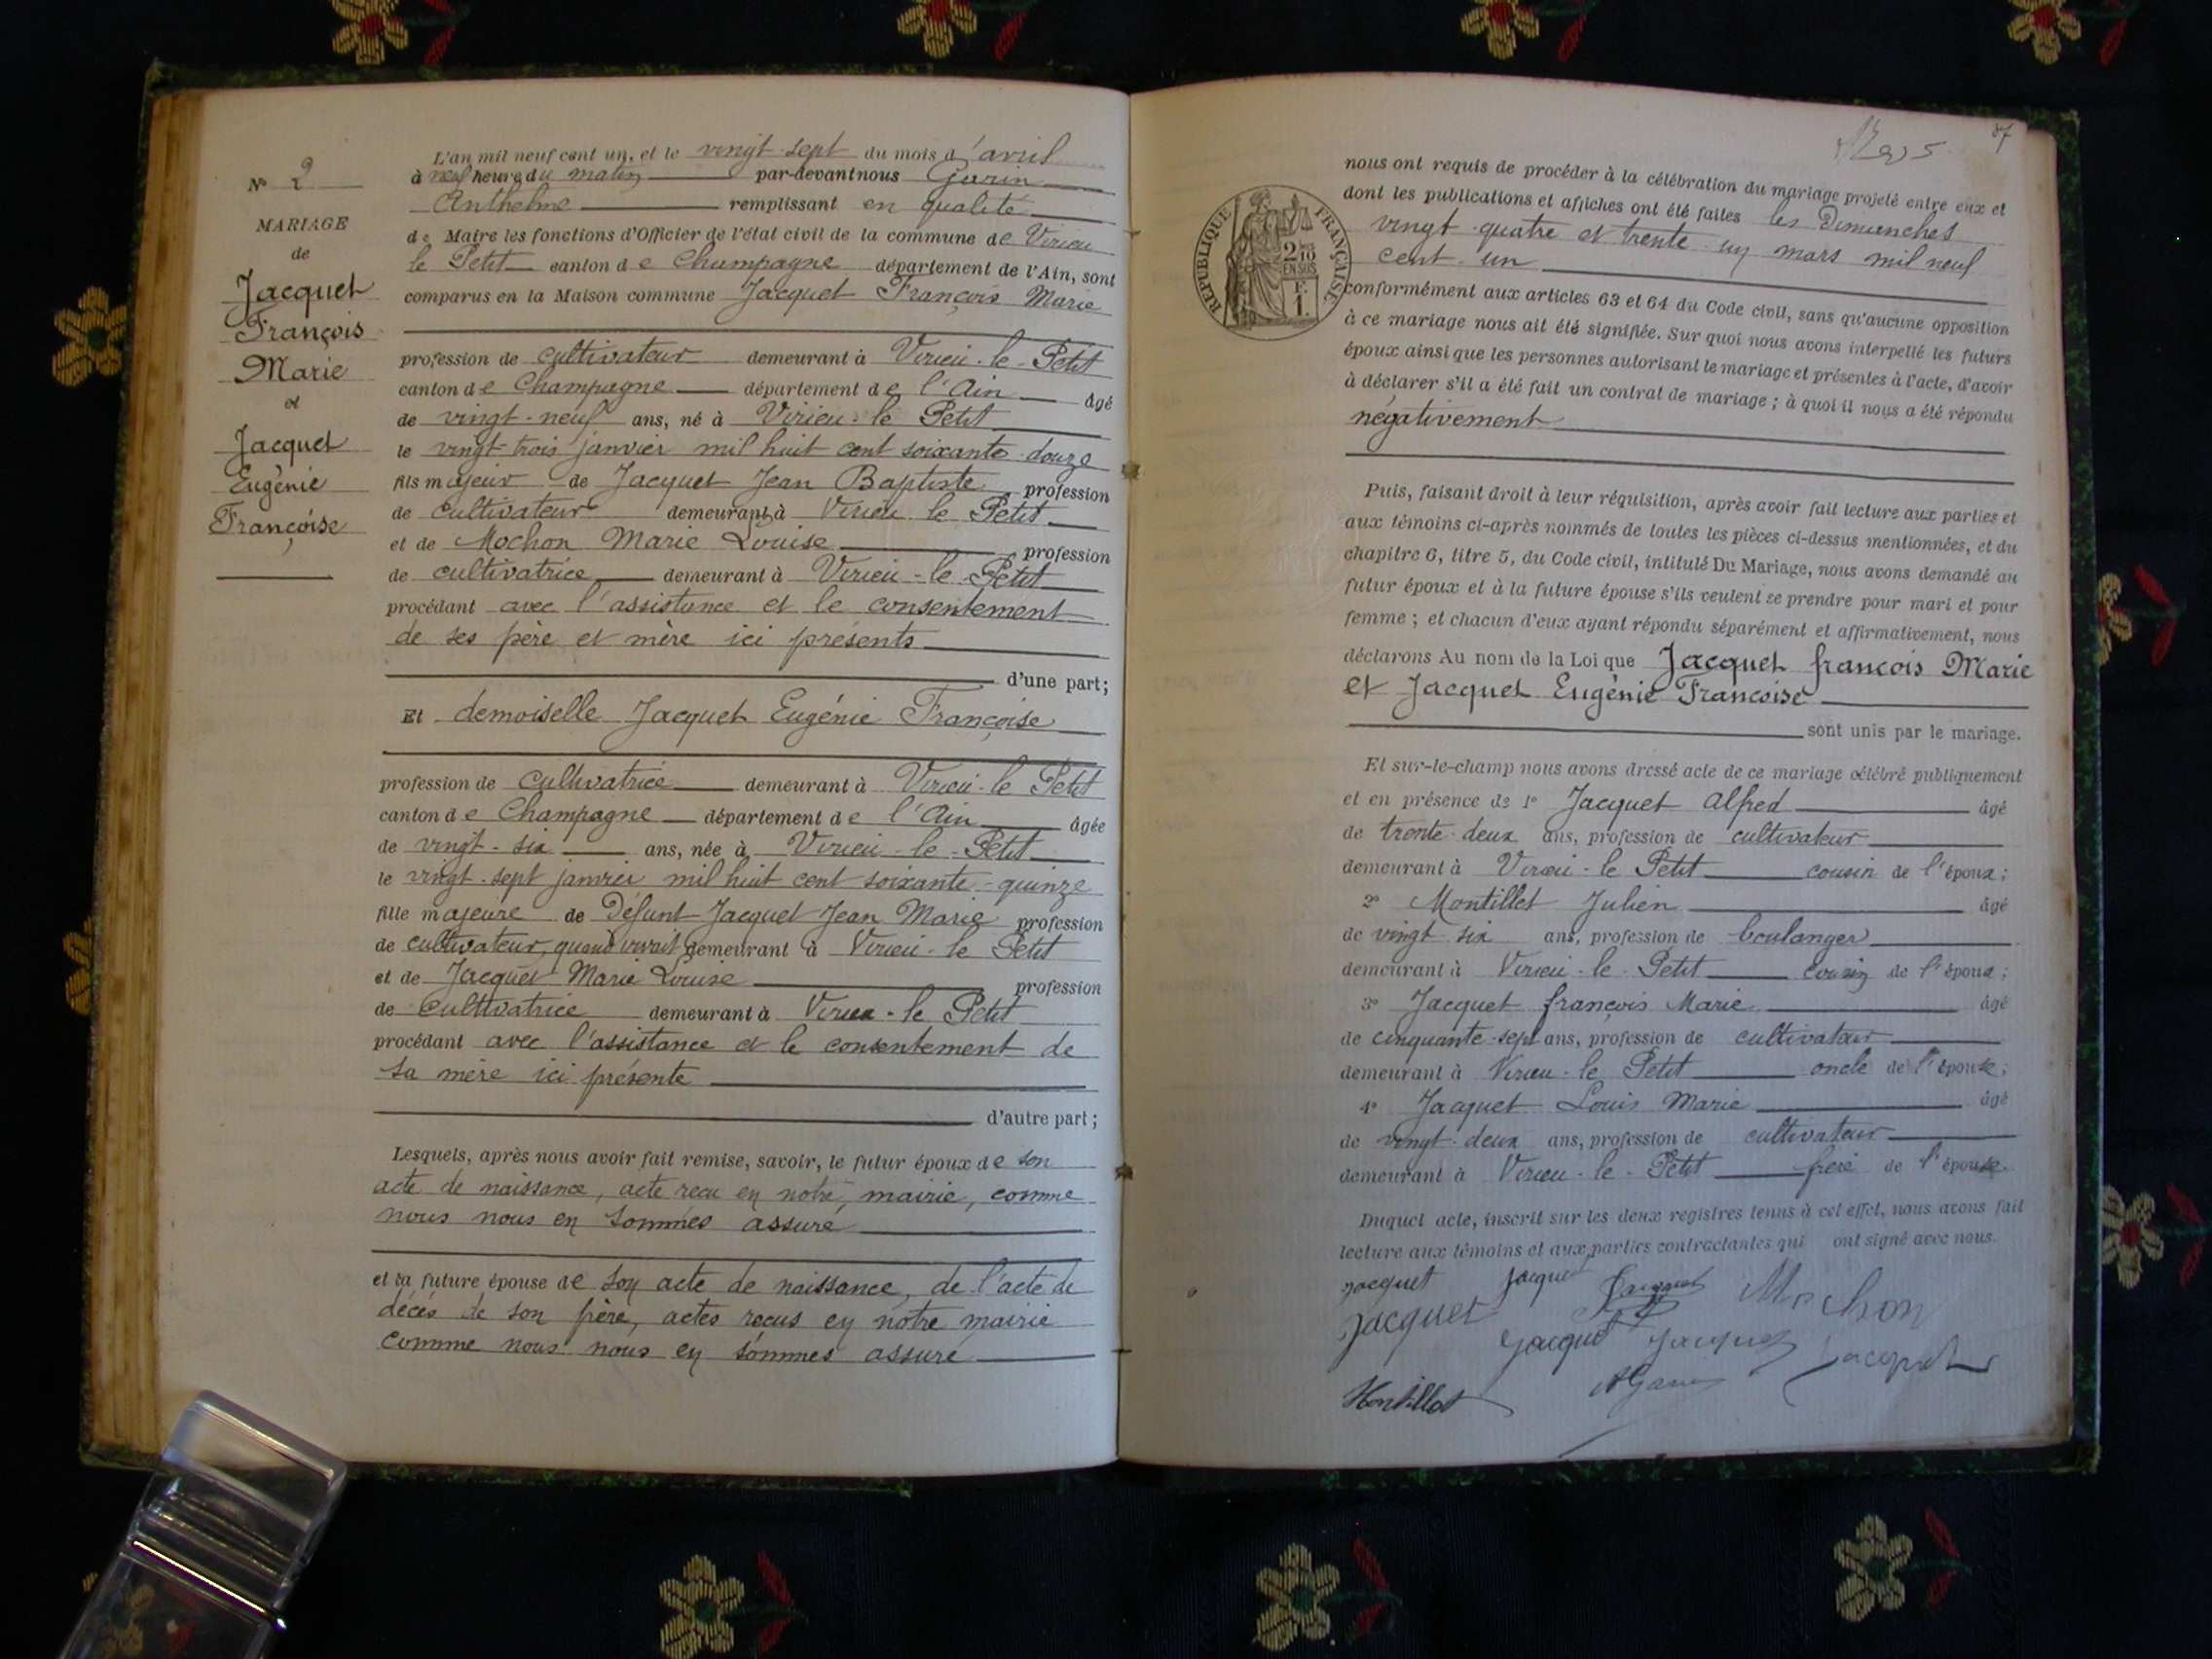 N° 2
MARIAGE
de
Jacquet
François
Marie
et
Jacquet
Eugénie
Françoise
L'an mil neuf cent un, et le vingt-sept du mois d'avril
à neuf heures du matin par-devant nous Garin
Anthelme remplissant en qualité
de Maire les fonctions d'Officier de l'état civil de la commune de Virieu
le Petit canton de Champagne département de l'Ain, sont
comparus en la Maison commune Jacquet François Marie
profession de cultivateur demeurant à Virieu-le-Petit
canton de Champagne département de l'Ain âgé
de vingt-neuf ans, né à Virieu-le Petit
le vingt-trois janvier mil huit cent soixante-douze
fils majeur de Jacquet Jean Baptiste profession
de cultivateur demeurant à Virieu le Petit
et de Mochon Marie Louise profession
de cultivatrice demeurant à Virieu-le-Petit
procédant avec l'assistance et le consentement
de ses père et mère ici présents
d'une part;
Et demoiselle Jacquet Eugénie Françoise
profession de cultivatrice demeurant à Virieu-le Petit
canton de Champagne département de l'Ain âgée
de vingt-six ans, née à Virieu-le-Petit
le vingt-sept janvier mil huit cent soixante-quinze
fille majeure de Défunt Jacquet Jean Marie profession
de cultivateur, quand vivait demeurant à Virieu-le Petit
et de Jacquet Marie Louise profession
de cultivatrice demeurant à Virieu-le Petit
procédant avec l'assistance et le consentement de
sa mère ici présente
d'autre part;
Lesquels, après nous avoir fait remise, savoir, le futur époux de son
acte de naissance, acte reçu en notre mairie, comme
nous nous en sommes assuré
et la future épouse de son acte de naissance, de l'acte de
décès de son père, actes reçus en notre mairie
comme nous nous en sommes assuré
87
RÉPUBLIQUE FRANÇAISE
2/10
EN SUS
F.
1.
nous ont requis de procéder à la célébration du mariage projeté entre eux et
dont les publications et affiches ont été faites les Dimanches
vingt-quatre et trente-un mars mil neuf
cent-un
conformément aux articles 63 et 64 du Code civil, sans qu'aucune opposition
à ce mariage nous ait été signifiée. Sur quoi nous avons interpellé les futurs
époux ainsi que les personnes autorisant le mariage et présentes à l'acte, d'avoir
à déclarer s'il a été fait un contrat de mariage; à quoi il nous a été répondu
négativement
Puis, faisant droit à leur réquisition, après avoir fait lecture aux parties et
aux témoins ci-après nommés de toutes les pièces ci-dessus mentionnées, et du
chapitre 6, titre 5, du Code civil, intitulé Du Mariage, nous avons demandé au
futur époux et à la future épouse s'ils veulent se prendre pour mari et pour
femme; et chacun d'eux ayant répondu séparément et affirmativement, nous
déclarons Au nom de la Loi que Jacquet françois Marie
et Jacquet Eugénie Françoise
sont unis par le mariage.
Et sur-le-champ nous avons dressé acte de ce mariage célébré publiquement
et en présence de 1° Jacquet Alfred âgé
de trente-deux ans, profession de cultivateur
demeurant à Virieu-le Petit cousin de l'époux;
2° Montillet Julien âgé
de vingt six ans, profession de boulanger
demeurant à Virieu-le-Petit cousin de l'époux;
3° Jacquet françois Marie âgé
de cinquante-sept ans, profession de cultivateur
demeurant à Virieu-le Petit oncle de l'épouse;
4° Jacquet Louis Marie âgé
de vingt-deux ans, profession de cultivateur
demeurant à Virieu-le-Petit frère de l'épouse.
Duquel acte, inscrit sur les deux registres tenus à cet effet, nous avons fait
lecture aux témoins et aux parties contractantes qui ont signé avec nous.
Jacquet Jacquet Jacquet Mochon
Jacquet Jacquet Jacquet Jacquet
Montillet AGarin